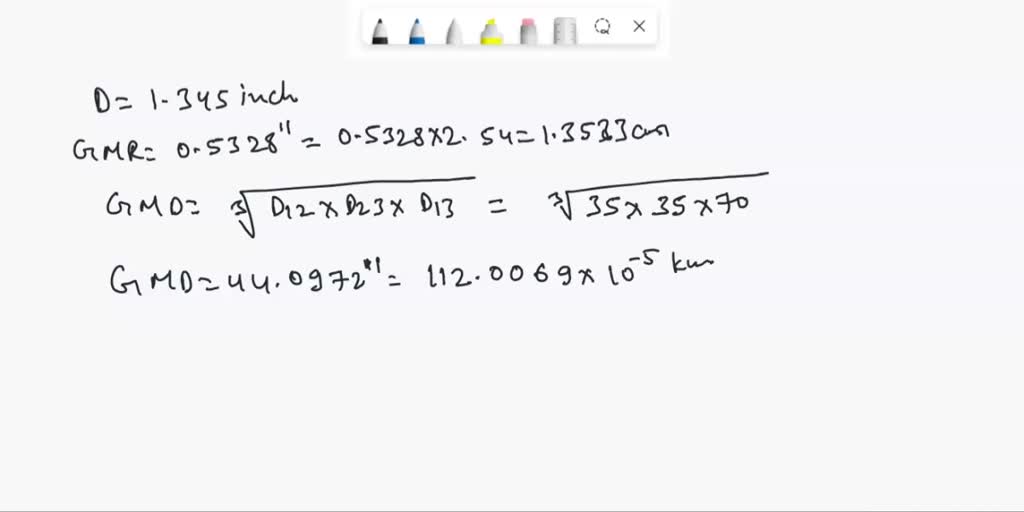 D= 1.345 inch
GMR= 0.5328" = 0.5328x2.54=1.3533cm
GMD= ∛D12 x D23 x D13 = ∛35 x 35 x 70
GMD=44.0972"= 112.0069x10^-5 km